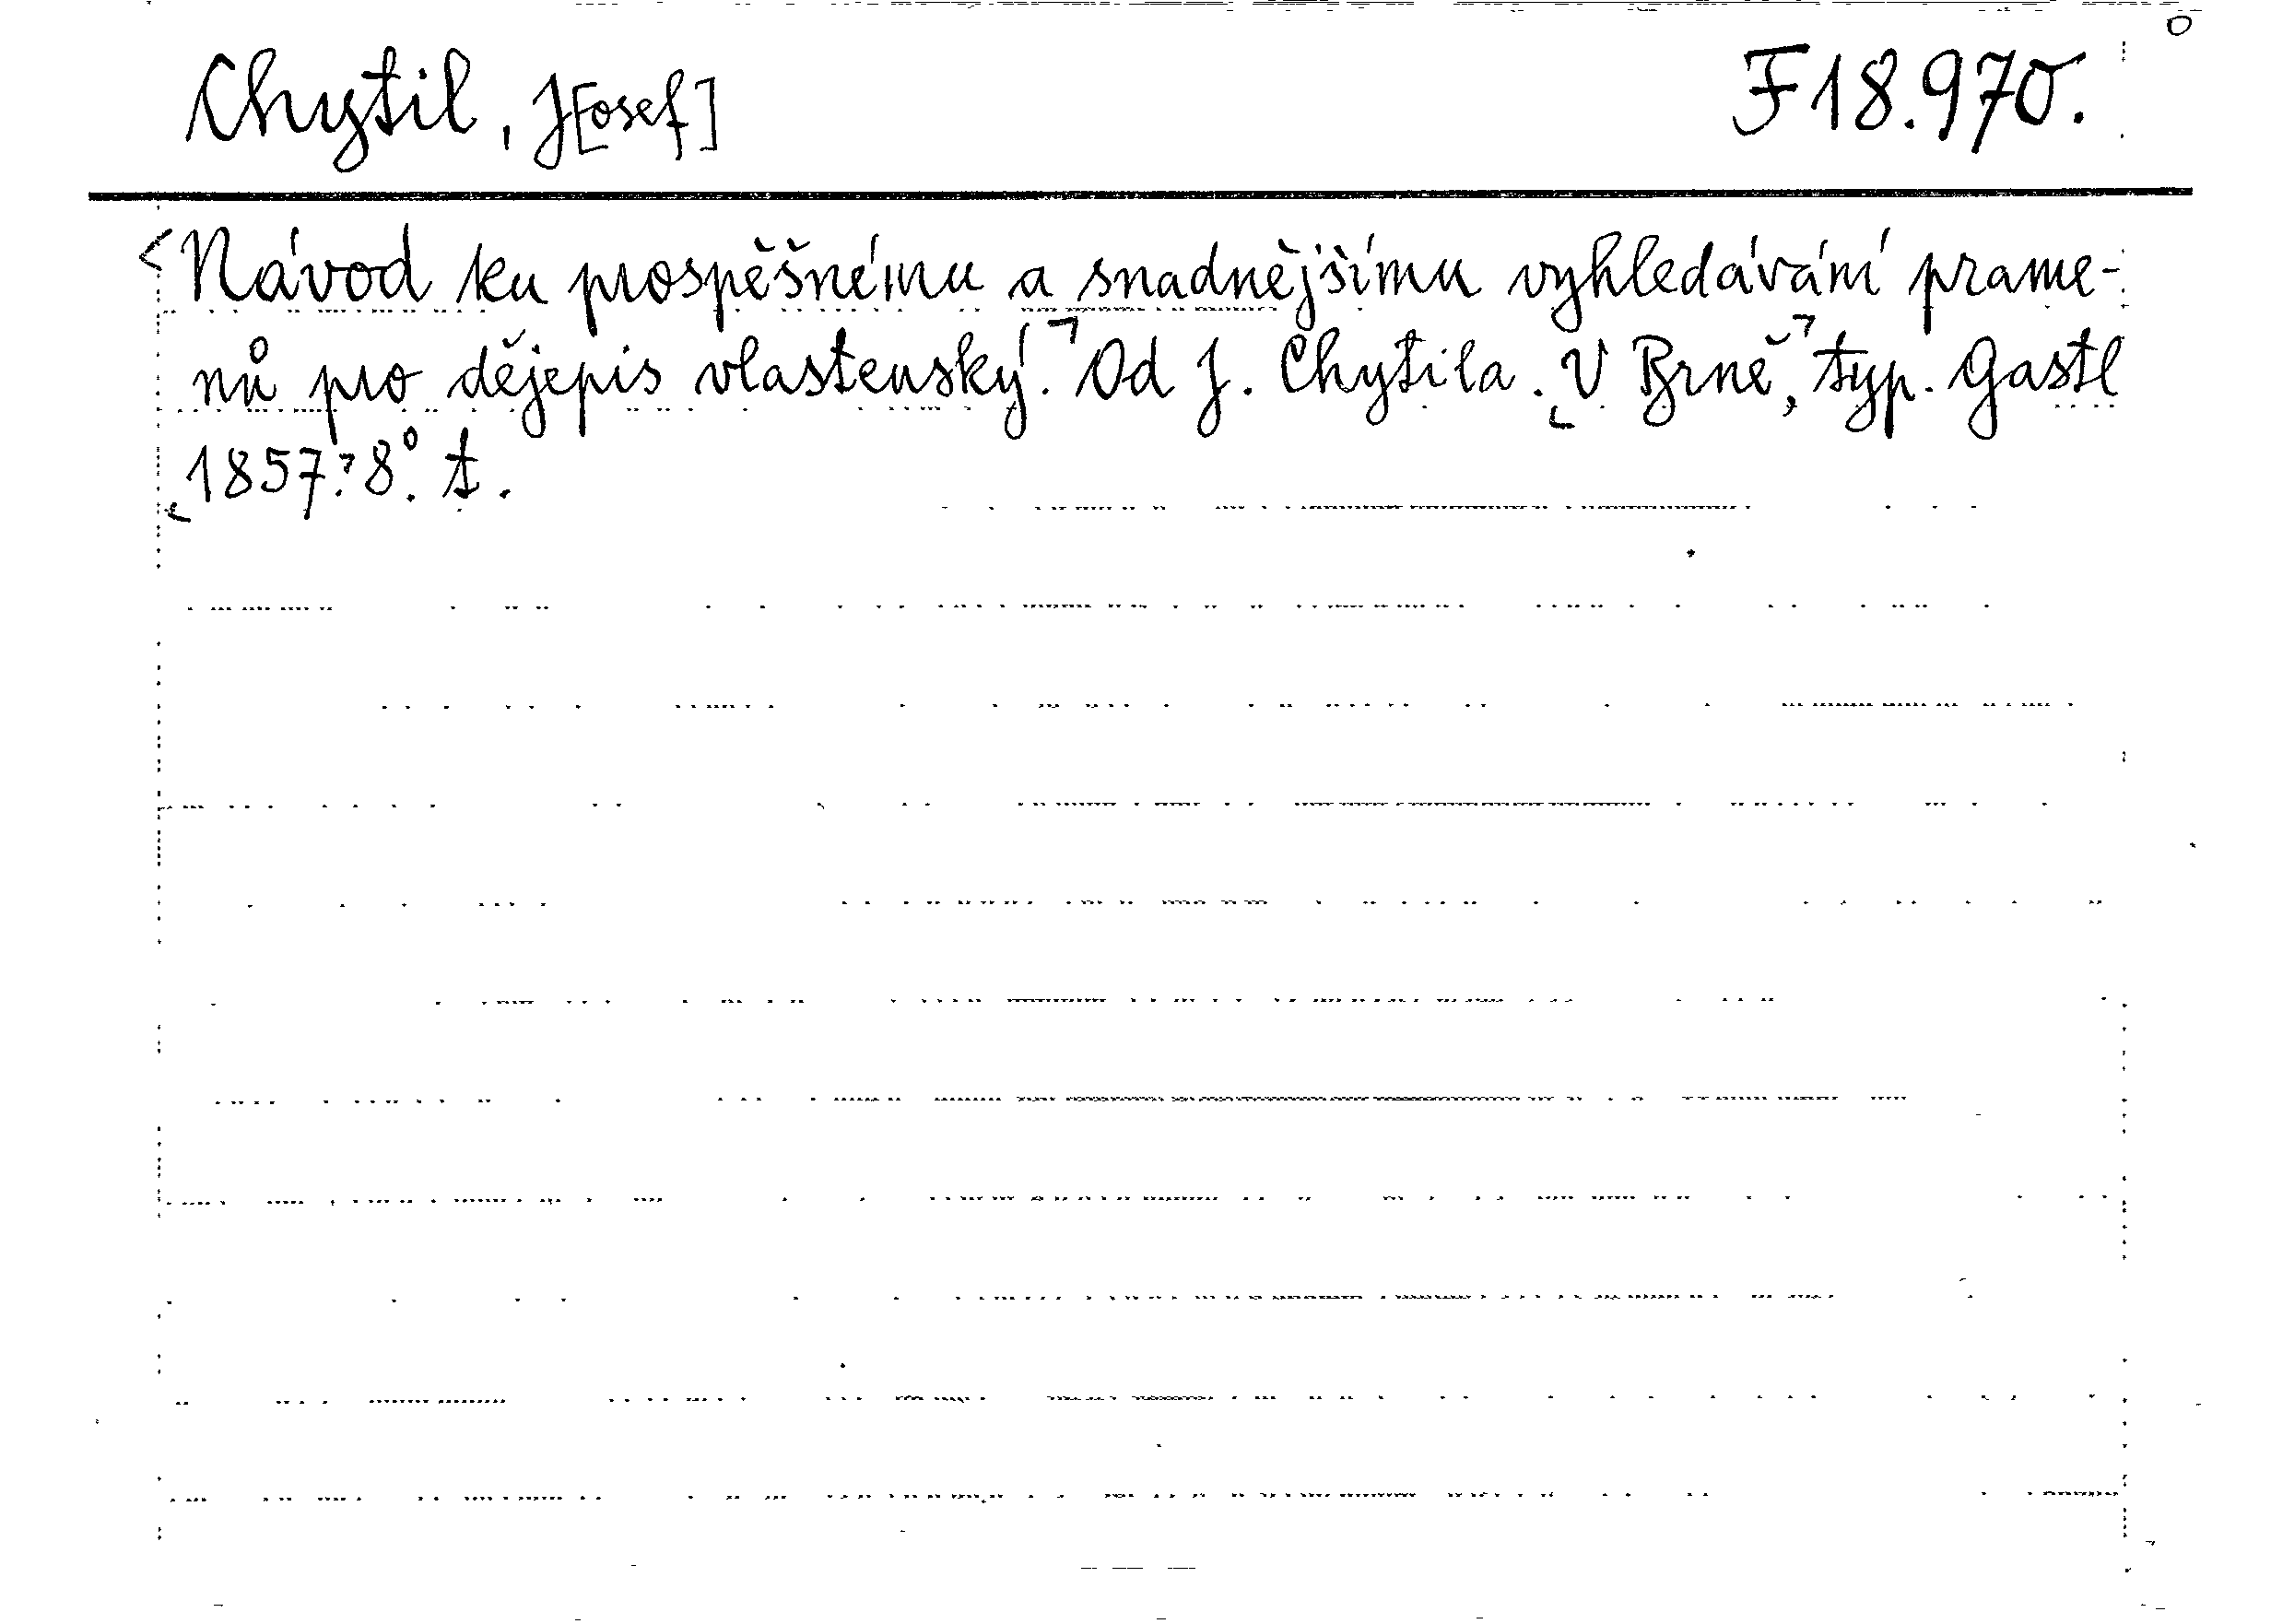 Chytil, J[osef] F 18.970.
<Návod ku prospěšnému a snadnějšímu vyhledávání prame-
nů pro dějepis vlastenský.⌝ Od J. Chytila. ⌞V Brně,⌝ typ. Gastl
⌞1857.⌝ 8°. t.